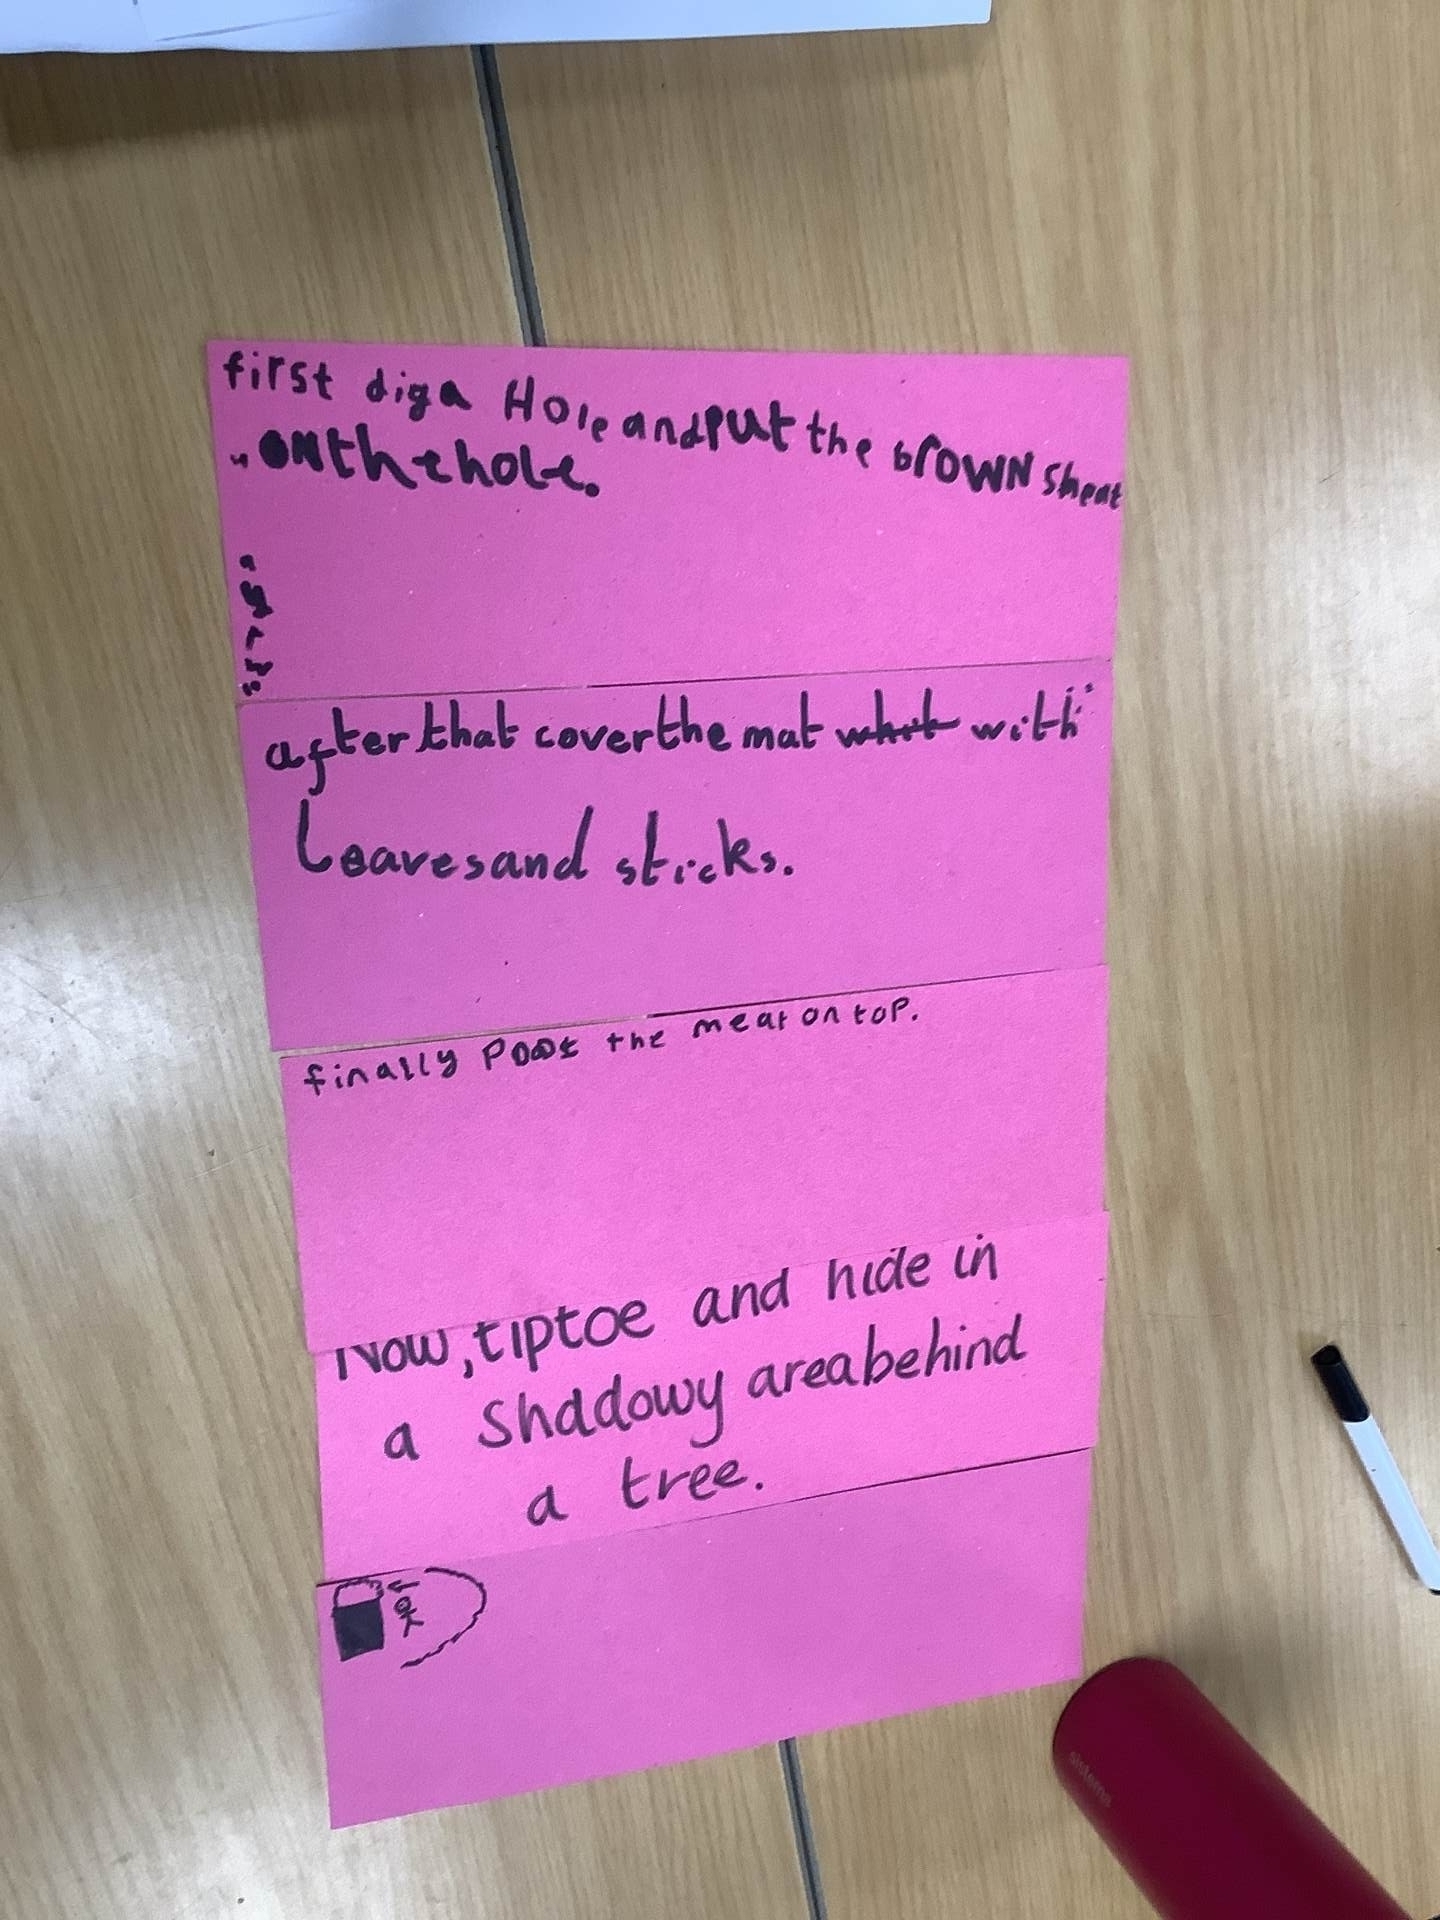 first dig a Hole and put the brown sheat
on the hole.
after that cover the mat what with
Leaves and sticks.
finally the meat on top.
Now, tiptoe and hide in
a Shadowy area behind
a tree.
sistema